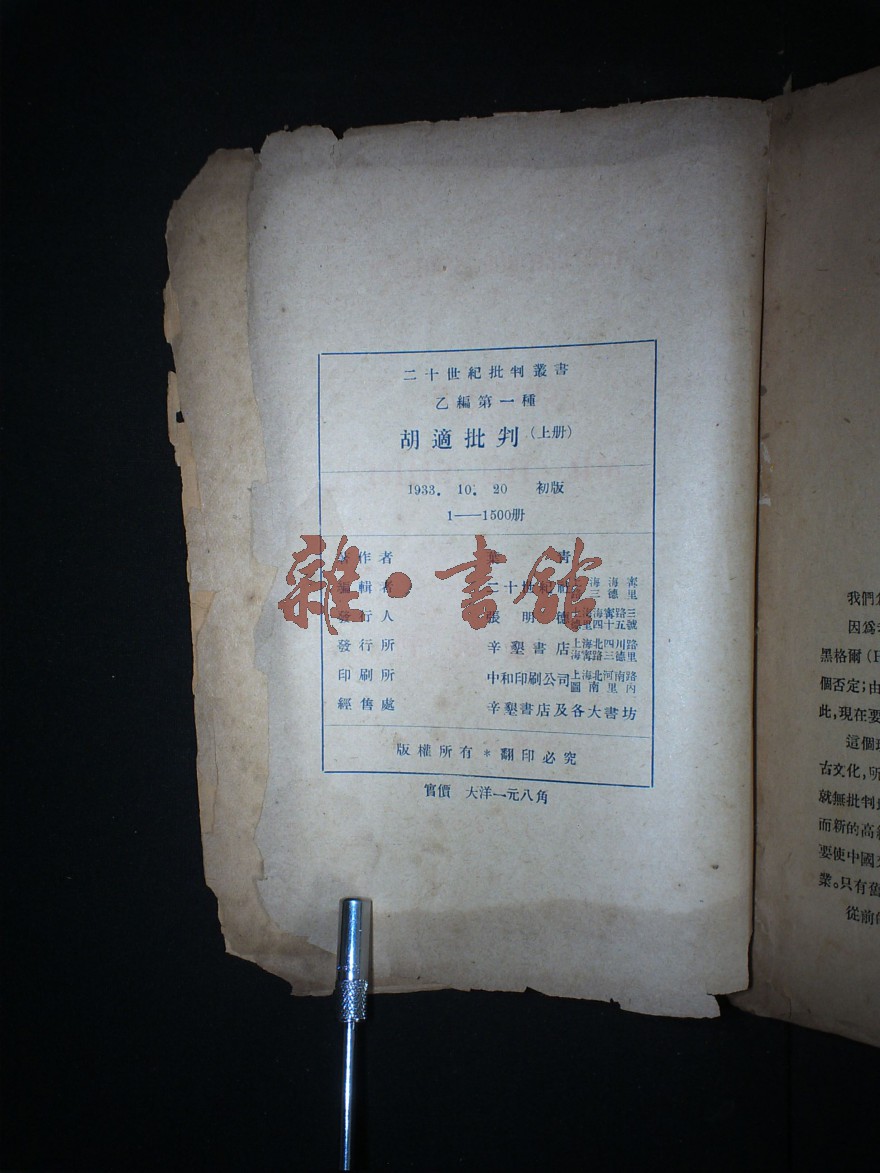 二十世紀批判叢書
乙編第一種
胡適批判(上册)
1933. 10. 20 初版
1——1500册
著作者 葉青
編輯者 二十世紀社 上海海寗三德里
發行人 張明德 上海海寗路三德里四十五號
發行所 辛墾書店 上海北四川路海寗路三德里
印刷所 中和印刷公司 上海北河南路圖南里內
經售處 辛墾書店及各大書坊
版權所有*翻印必究
實價 大洋一元八角
雜·書館
我們
因爲
黑格爾(
個否定;由
此,現在要
這個
古文化,所
就無批判
而新的高
要使中國
業。只有舊
從前的